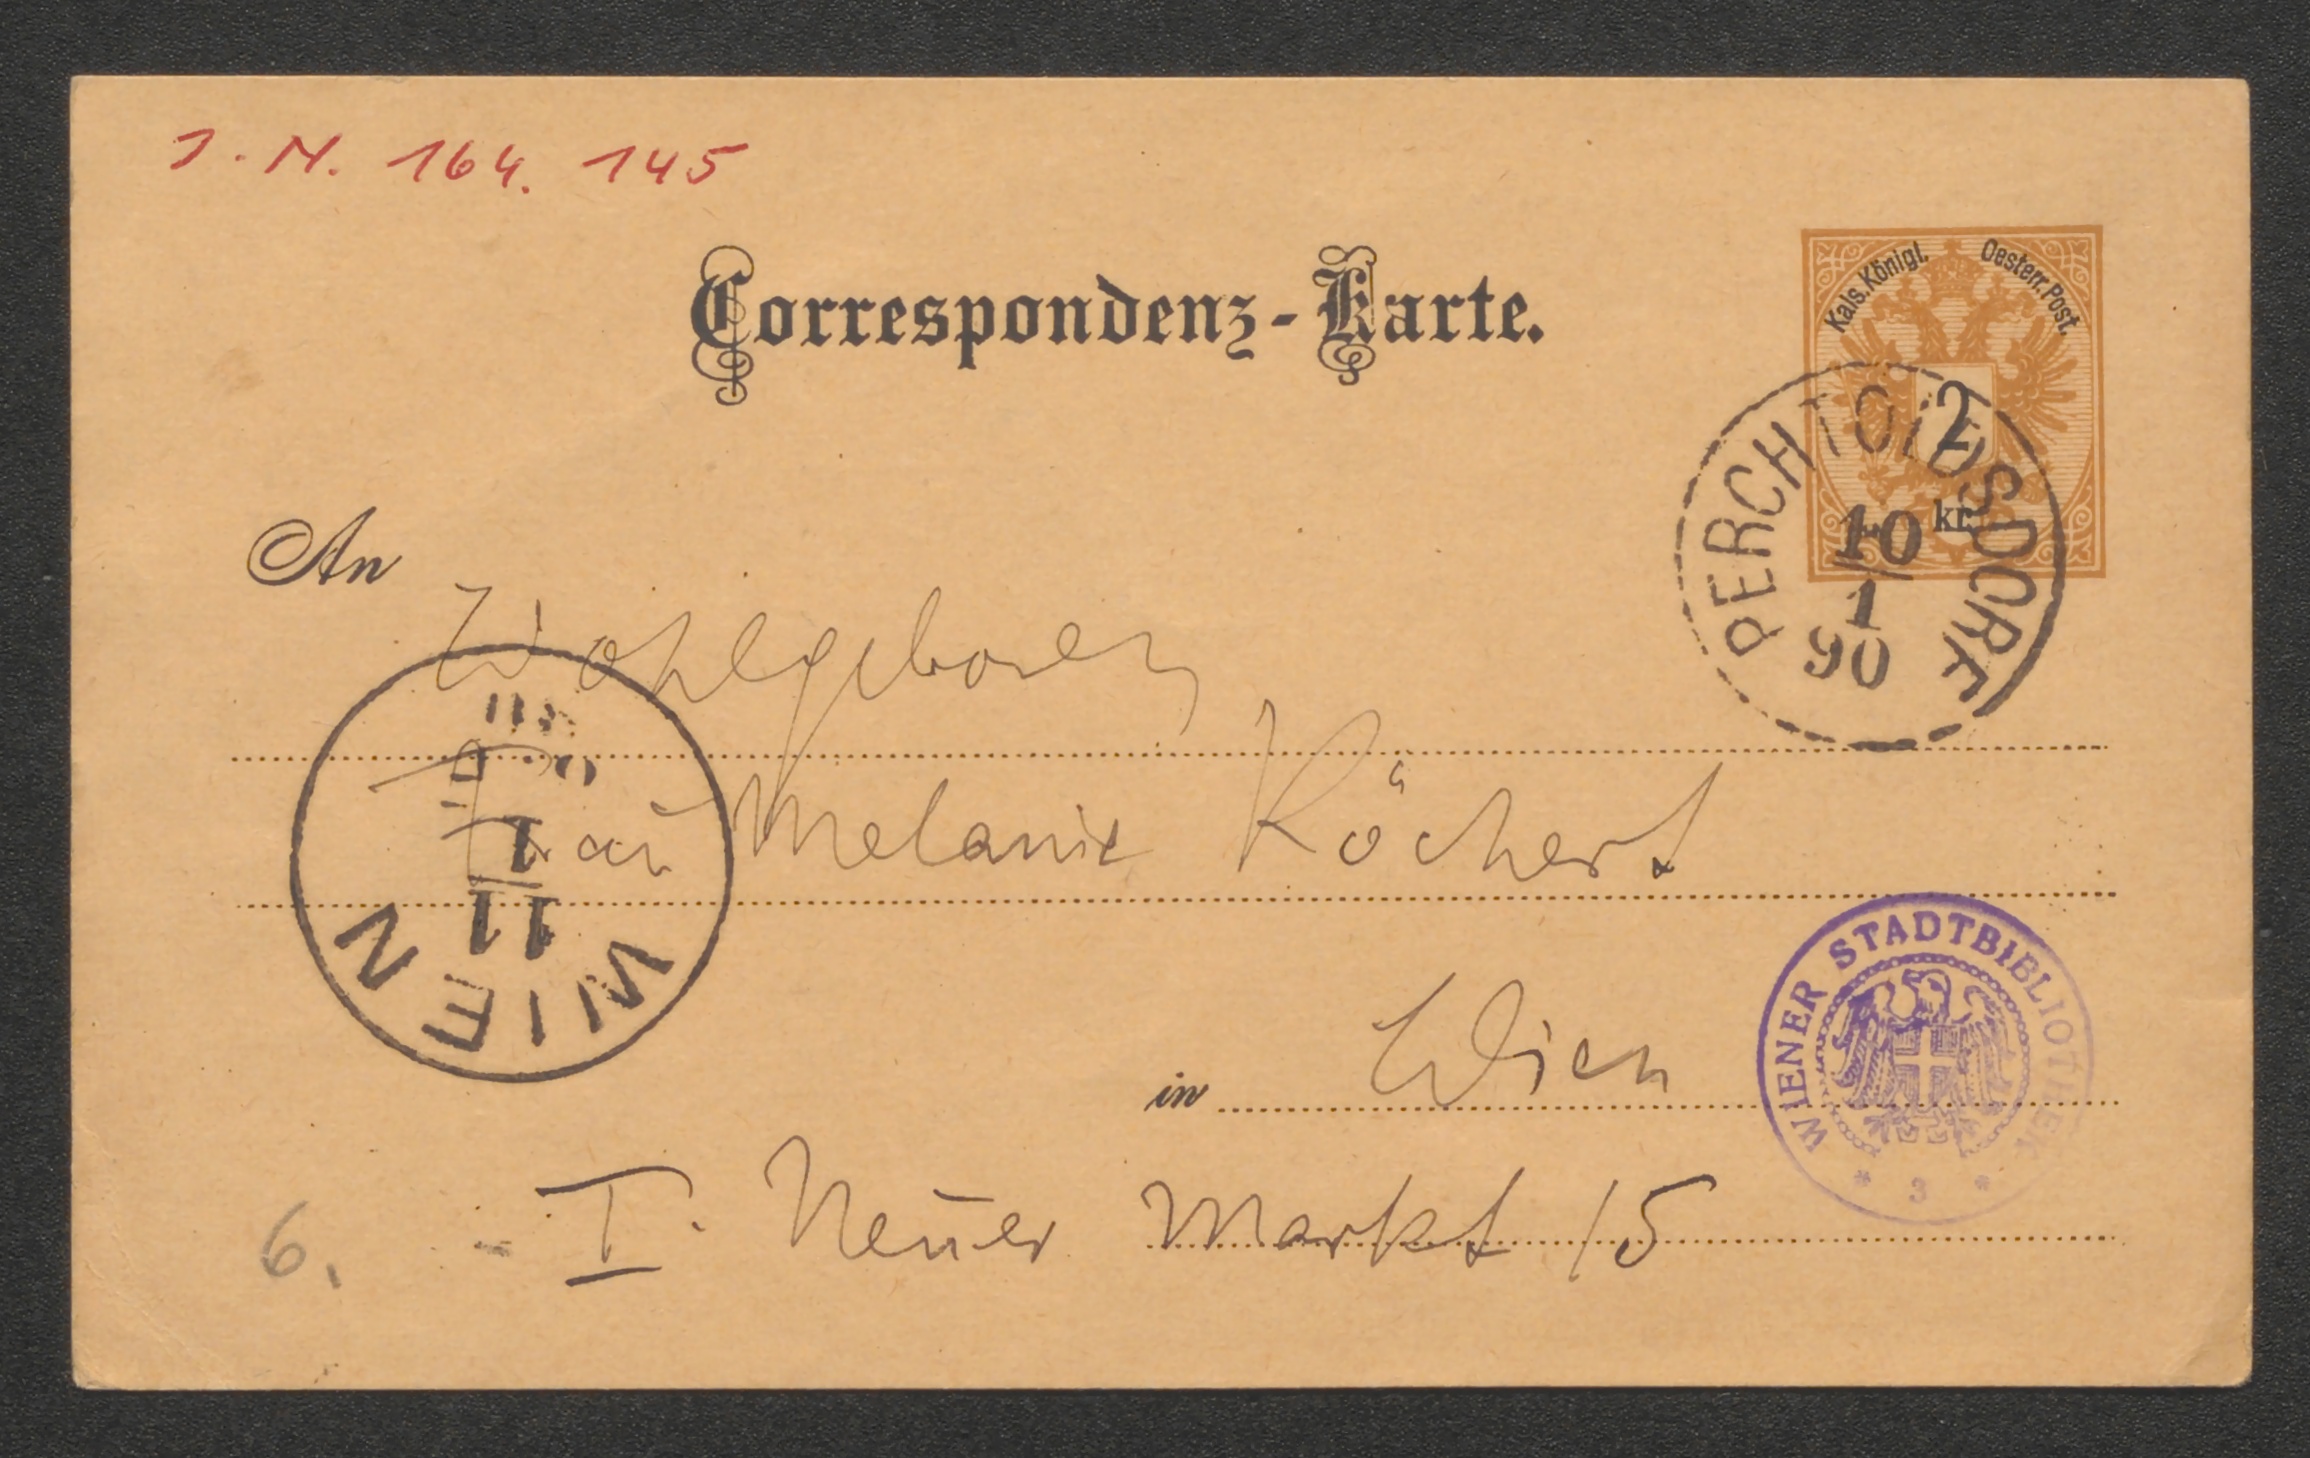 J. N. 164. 145
Correspondenz-Karte.
Kais. Königl. Oesterr. Post.
2 kr.
PERCHTOLDSDORF
10
1
90
An
Wohlgeboren
Frau Melanie Köchert
WIEN
11
1
in Wien
WIENER STADTBIBLIOTHEK
* 3 *
I. Neuer Markt 15
6.